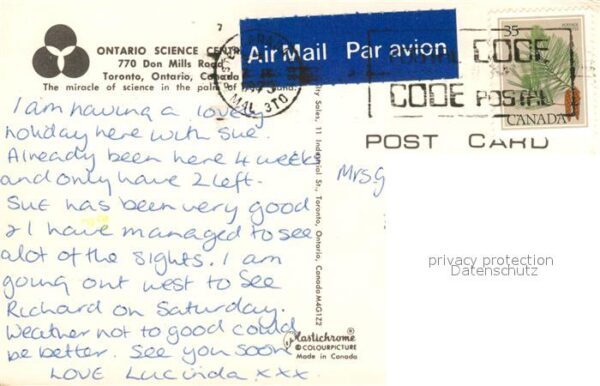 7
ONTARIO SCIENCE CENTRE
770 Don Mills Road
Toronto, Ontario, Canada
The miracle of science in the palm of your hand.
Air Mail Par avion
35
CANADA
POSTAL CODE
CODE POSTAL
MAL 3T0
POST CARD
I am having a lovely
holiday here with Sue.
Already been here 4 weeks
and only have 2 left.
Sue has been very good
& I have managed to see
alot of the sights. I am
going out west to see
Richard on Saturday.
Weather not to good could
be better. See you soon
LOVE Lucinda xxx
Sales, 11 Industrial St., Toronto, Ontario, Canada M4G1Z2
Mrs G
privacy protection
Datenschutz
Plastichrome®
© COLOURPICTURE
Made in Canada